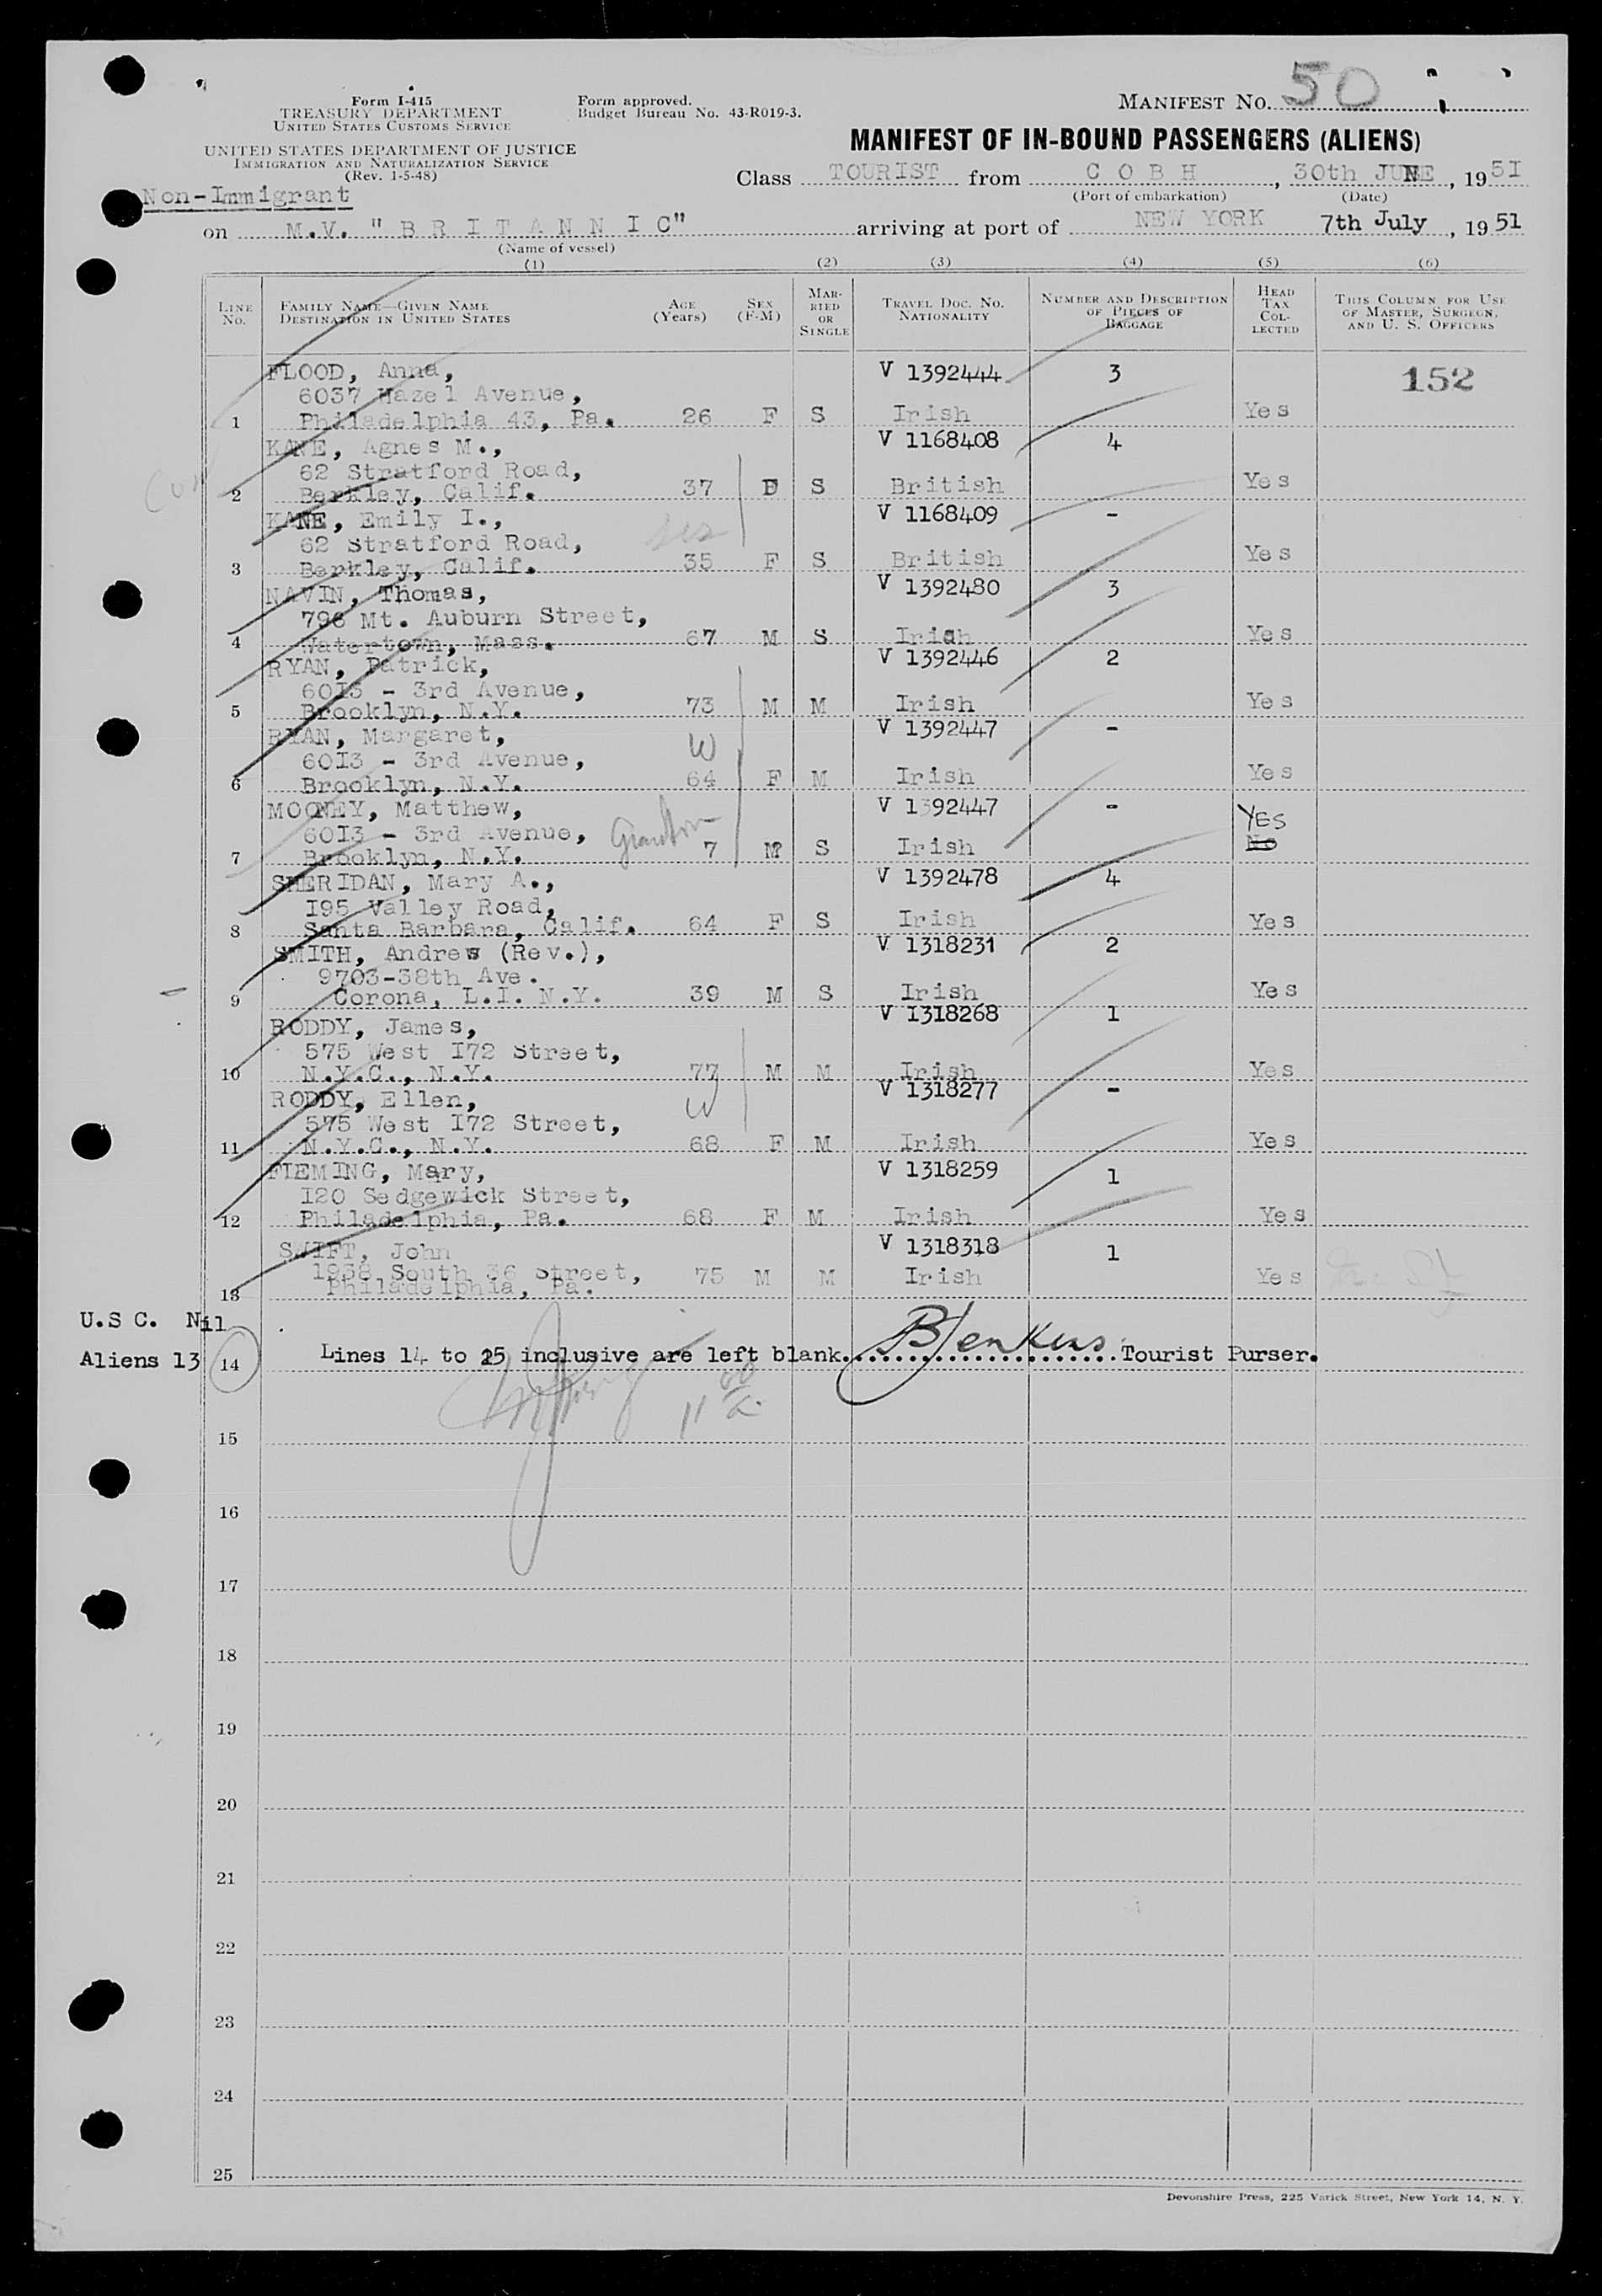 Form I-415
TREASURY DEPARTMENT
UNITED STATES CUSTOMS SERVICE
UNITED STATES DEPARTMENT OF JUSTICE
IMMIGRATION AND NATURALIZATION SERVICE
(Rev. 1-5-48)
Form approved.
Budget Bureau No. 43-R019-3.
MANIFEST NO. 50
MANIFEST OF IN-BOUND PASSENGERS (ALIENS)
Class TOURIST from C O B H, 30th JUNE, 1951
(Port of embarkation) (Date)
Non-Immigrant
on M.V. "B R I T A N N I C" arriving at port of NEW YORK 7th July, 1951
(Name of vessel)
(1) (2) (3) (4) (5) (6)
LINE No. FAMILY NAME—GIVEN NAME DESTINATION IN UNITED STATES AGE (Years) SEX (F-M) MARRIED OR SINGLE TRAVEL DOC. NO. NATIONALITY NUMBER AND DESCRIPTION OF PIECES OF BAGGAGE HEAD TAX COLLECTED THIS COLUMN FOR USE OF MASTER, SURGEON, AND U. S. OFFICERS
FLOOD, Anna, V 1392444 3 152
6037 Hazel Avenue,
1 Philadelphia 43, Pa. 26 F S Irish Yes
KANE, Agnes M., V 1168408 4
62 Stratford Road,
2 Berkley, Calif. 37 F S British Yes
KANE, Emily I., V 1168409 -
62 Stratford Road, sis
3 Berkley, Calif. 35 F S British Yes
NAVIN, Thomas, V 1392480 3
796 Mt. Auburn Street,
4 Watertown, Mass. 67 M S Irish Yes
RYAN, Patrick, V 1392446 2
6013 - 3rd Avenue,
5 Brooklyn, N.Y. 73 M M Irish Yes
RYAN, Margaret, W V 1392447 -
6013 - 3rd Avenue,
6 Brooklyn, N.Y. 64 F M Irish Yes
MOONEY, Matthew, V 1392447 - YES
6013 - 3rd Avenue, Grandson
7 Brooklyn, N.Y. 7 M S Irish No
SHERIDAN, Mary A., V 1392478 4
195 Valley Road,
8 Santa Barbara, Calif. 64 F S Irish Yes
SMITH, Andrew (Rev.), V 1318231 2
9703-38th Ave.
9 Corona, L.I. N.Y. 39 M S Irish Yes
RODDY, James, V 1318268 1
575 West 172 Street,
10 N.Y.C., N.Y. 77 M M Irish Yes
RODDY, Ellen, W V 1318277 -
575 West 172 Street,
11 N.Y.C., N.Y. 68 F M Irish Yes
FLEMING, Mary, V 1318259 1
120 Sedgewick Street,
12 Philadelphia, Pa. 68 F M Irish Yes
SWIFT, John V 1318318 1
1938 South 36 Street, 75 M M Irish Yes
13 Philadelphia, Pa.
U.S C. Nil
Aliens 13 14 Lines 14 to 25 inclusive are left blank. B Jenkins Tourist Purser.
11 00 a.
15
16
17
18
19
20
21
22
23
24
25
Devonshire Press, 225 Varick Street, New York 14, N. Y.